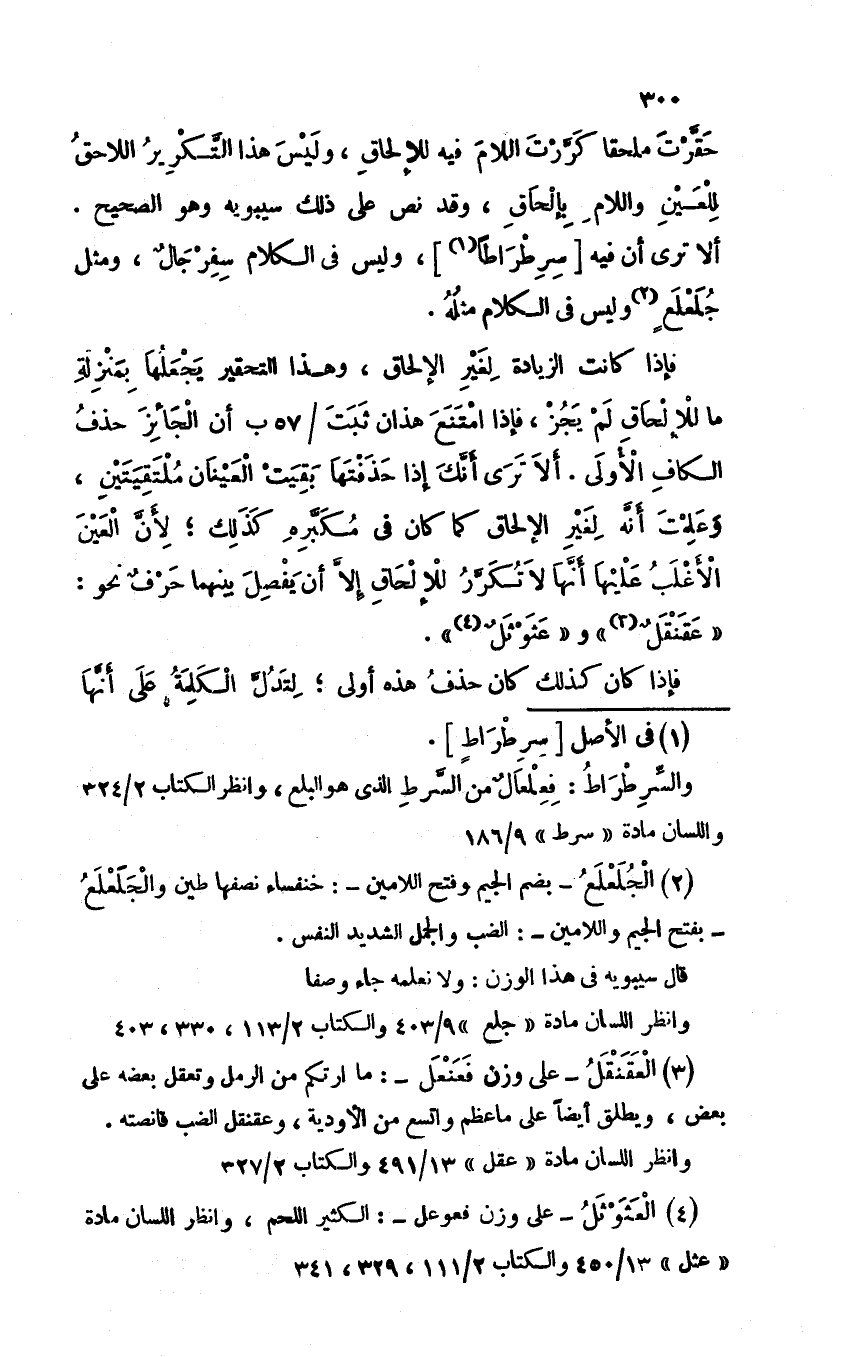 ٣٠٠
حَقَّرْتَ ملحقا كَرَّرْتَ اللامَ فيه للإلحاقِ ، ولَيْسَ هذا التَّكْرِيرُ اللاحقُ
لِلْعَيْنِ واللامِ بِإلْحَاقِ ، وقد نص على ذلك سيبويه وهو الصحيح .
ألا ترى أن فيه [ سِرِطْرَاطاً(١) ] ، وليس فى الكلام سِفِرْجَالٌ ، ومثل
جُلَعْلَعٍ(٢) وليس فى الكلام مثلُهُ .
فإذا كانت الزيادة لِغَيْرِ الإلحاق ، وهذا التحقير يَجْعَلُهَا بِمَنْزِلَةِ
ما للْإلْحَاقِ لَمْ يَجُزْ ، فإذا امْتَنَعَ هذان ثَبَتَ / ٥٧ ب أن الْجَائِزَ حذفُ
الكافِ الْأُولَى . ألاَ تَرَى أَنَّكَ إذا حَذَفْتَهَا بَقِيَتْ الْعَيْنَان مُلْتَقِيَتَيْنِ ،
وَعَلِمْتَ أَنَّه لِغَيْرِ الإلحاق كما كان فى مُكَبَّرِهِ كَذَلِك ؛ لِأَنَّ الْعَيْنَ
الْأَغْلَبُ عَلَيْهَا أَنَّهَا لاَ تُكَرَّرُ للْإلْحَاقِ إلاَّ أن يَفْصِلَ بينهما حَرْفٌ نحو :
« عَقَنْقَلٌ(٣) » و « عَثَوْثَلٌ(٤) » .
فإذا كان كذلك كان حذفُ هذه أولى ؛ لِتَدُلَّ الْكَلِمَةُ عَلَى أَنَّهَا
(١) فى الأصل [ سِرِطْرَاطٍ ] .
والسِّرِطْرَاطُ : فِعِلْعَالٌ من السَّرطِ الذى هو البلع ، وانظر الكتاب ٣٢٤/٢
واللسان مادة « سرط » ١٨٦/٩
(٢) الْجُلَعْلَعُ – بضم الجيم وفتح اللامين – : خنفساء نصفها طين والْجَلَعْلَعُ
– بفتح الجيم واللامين – : الضب والجمل الشديد النفس .
قال سيبويه فى هذا الوزن : ولا نعلمه جاء وصفا
وانظر اللسان مادة « جلع » ٤٠٣/٩ والكتاب ١١٣/٢ ، ٣٣٠ ، ٤٠٣
(٣) الْعَقَنْقَلُ – على وزن فَعَنْعَل – : ما ارتكم من الرمل وتعقل بعضه على
بعض ، ويطلق أيضاً على ماعظم واتسع من الأودية ، وعقنقل الضب قانصته .
وانظر اللسان مادة « عقل » ٤٩١/١٣ والكتاب ٣٢٧/٢
(٤) الْعَثَوْثَلُ – على وزن فعوعل – : الكثير اللحم ، وانظر اللسان مادة
« عثل » ٤٥٠/١٣ والكتاب ١١١/٢ ، ٣٢٩ ، ٣٤١